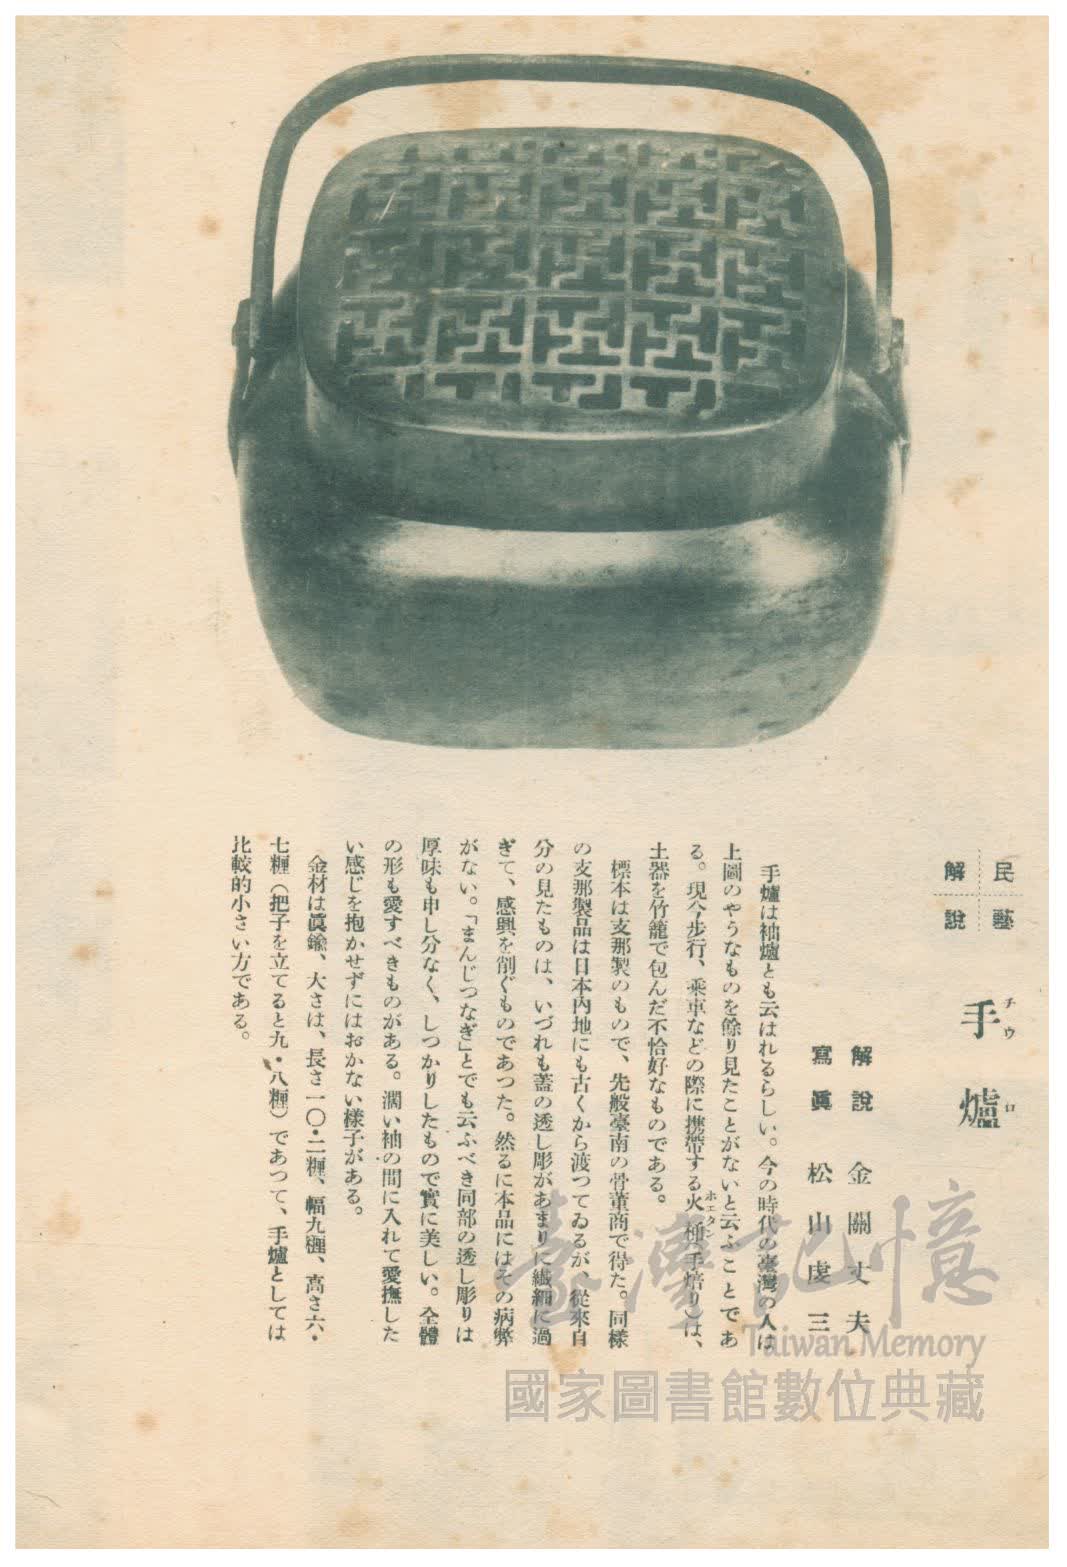 民藝
解說
手爐
チウロ
解說 金關丈夫
寫眞 松山虔三
手爐は袖爐とも云はれるらしい。今の時代の臺灣の人は
上圖のやうなものを餘り見たことがないと云ふことであ
る。現今步行、乘車などの際に携帶する火桶(手焙り)は、
ホエタン
土器を竹籠で包んだ不恰好なものである。
標本は支那製のもので、先般臺南の骨董商で得た。同樣
の支那製品は日本內地にも古くから渡つてゐるが、從來自
分の見たものは、いづれも蓋の透し彫があまりに纎細に過
ぎて、感興を削ぐものであつた。然るに本品にはその病弊
がない。「まんじつなぎ」とでも云ふべき同部の透し彫りは
厚味も申し分なく、しつかりしたもので實に美しい。全體
の形も愛すべきものがある。濶い袖の間に入れて愛撫した
い感じを抱かせずにはおかない樣子がある。
金材は眞鍮、大さは、長さ一〇・二糎、幅九糎、高さ六・
七糎(把子を立てると九・八糎)であつて、手爐としては
比較的小さい方である。
臺灣記憶
Taiwan Memory
國家圖書館數位典藏